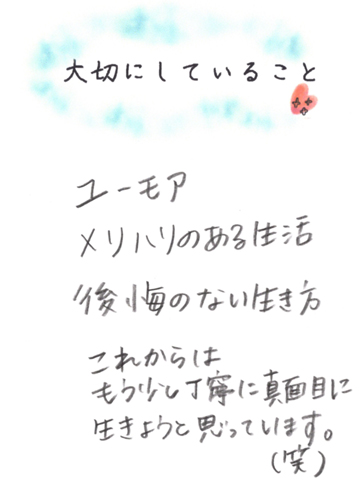 大切にしていること
ユーモア
メリハリのある生活
後悔のない生き方
これからは
もう少し丁寧に真面目に
生きようと思っています。
(笑)